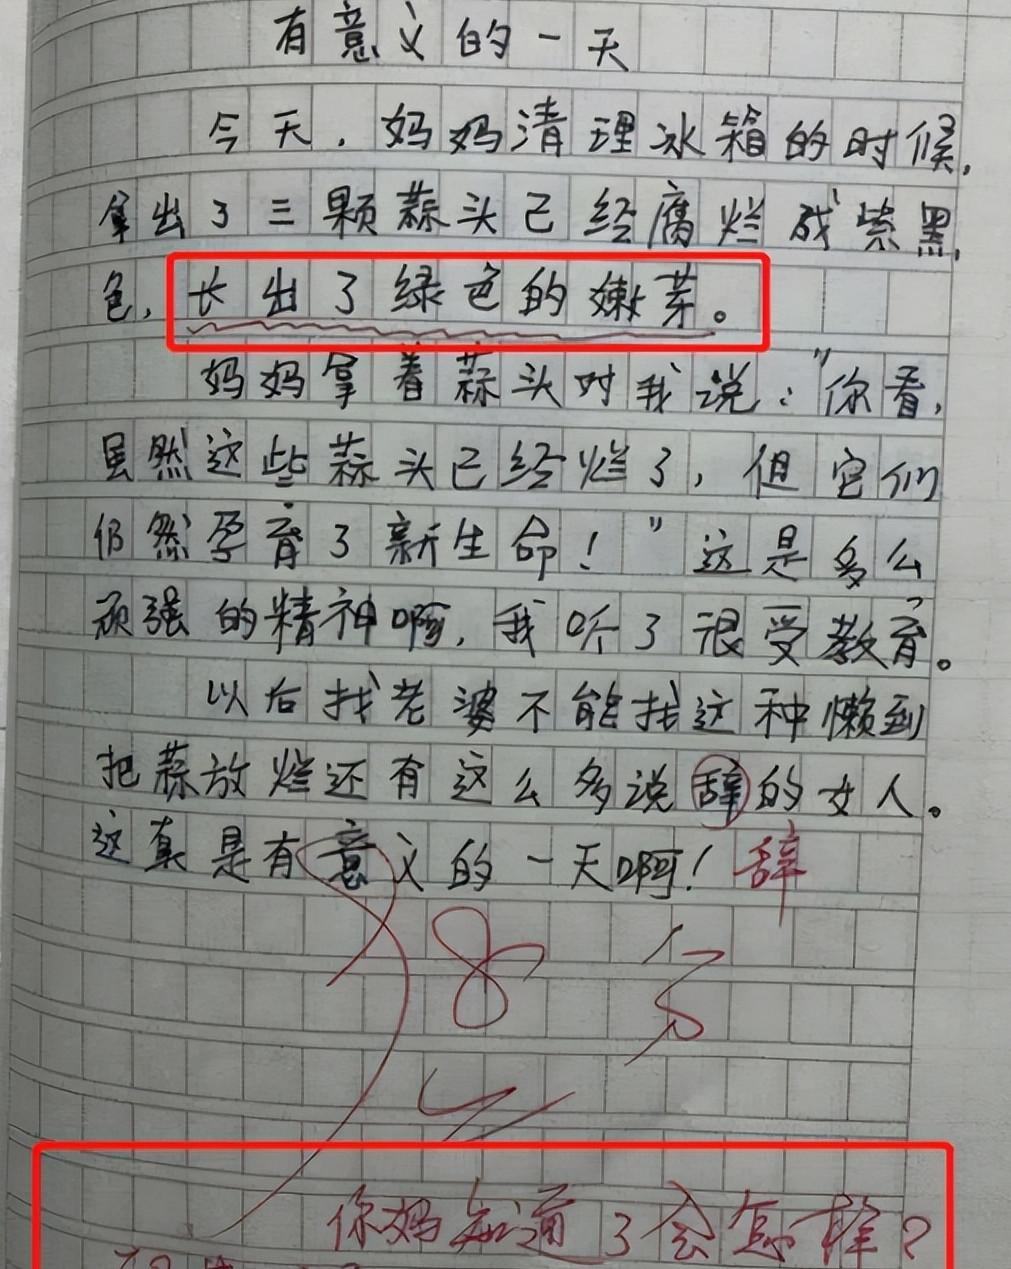 有意义的一天
今天，妈妈清理冰箱的时候，
拿出了三颗蒜头已经腐烂成紫黑
色，长出了绿色的嫩芽。
妈妈拿着蒜头对我说："你看，
虽然这些蒜头已经烂了，但它们
仍然孕育了新生命！"这是多么
顽强的精神啊，我听了很受教育。
以后找老婆不能找这种懒到
把蒜放烂还有这么多说辞的女人。
这真是有意义的一天啊！辞
98分
你妈知道了会怎样？